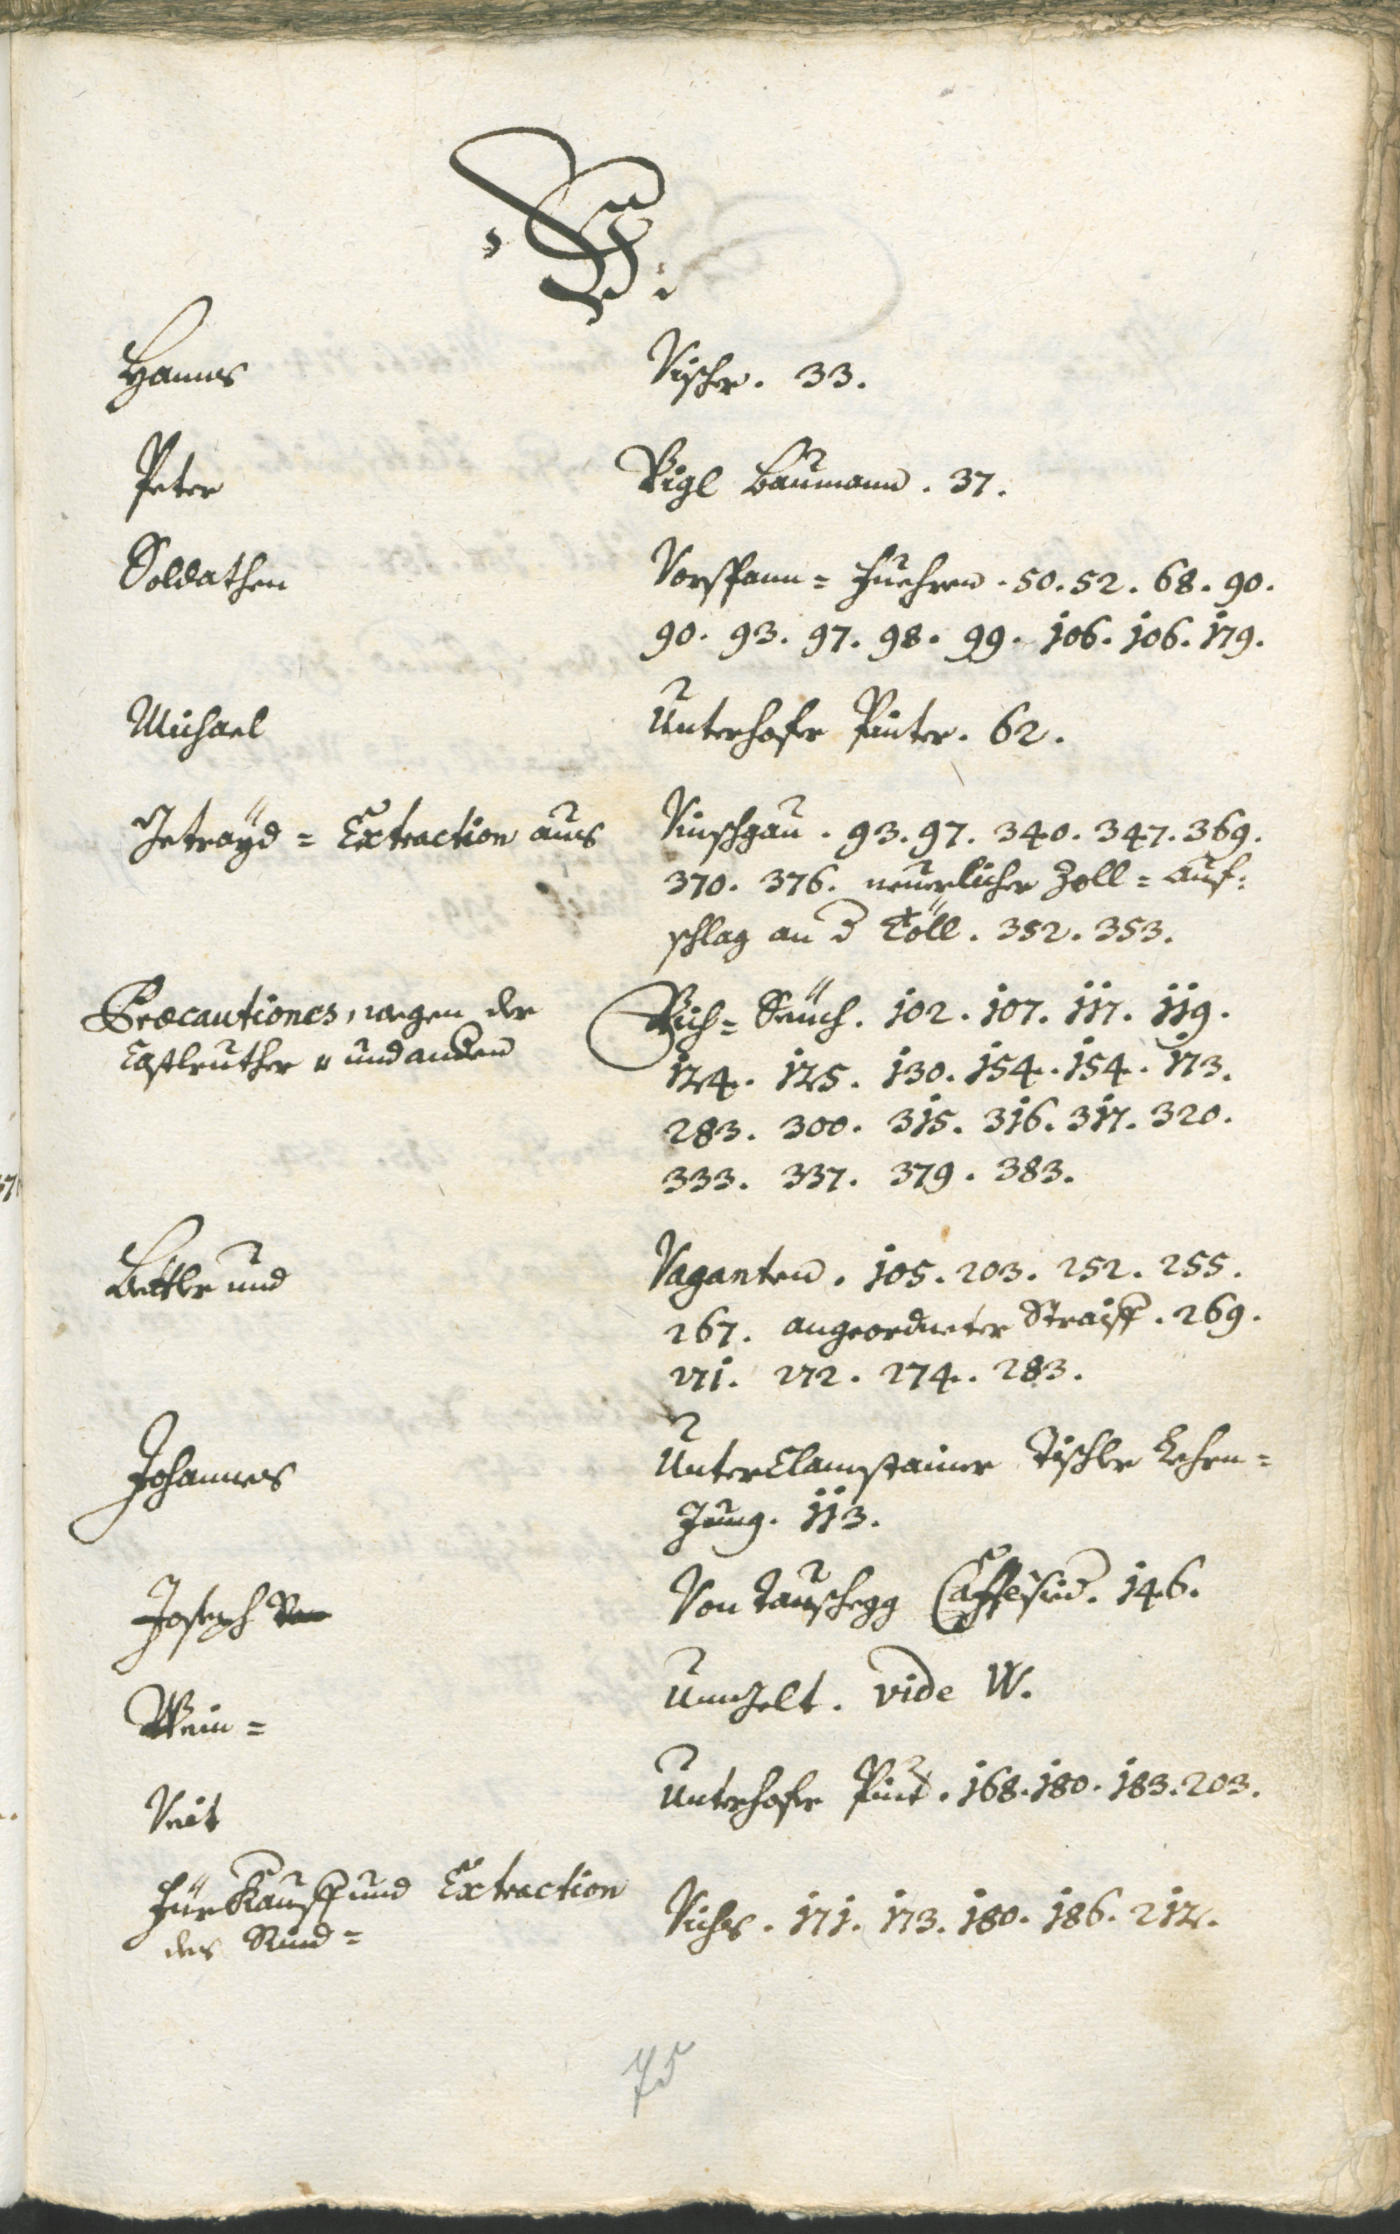 V.
Hanns Vischer. 33.
Peter Vigl Baumann. 37.
Soldathen Vorspann= Fuehren. 50. 52. 68. 90.
90. 93. 97. 98. 99. 106. 106. 179.
Michael Unterhofer Pinter. 62.
Getrayd= Extraction aus Vinschgau. 93. 97. 340. 347. 369.
370. 376. neuerlicher Zoll= Auf=
schlag an d Töll. 352. 353.
Præcautiones, wegen der Vich= Seuch. 102. 107. 117. 119.
Castlruther und andern 124. 125. 130. 154. 154. 173.
283. 300. 315. 316. 317. 320.
333. 337. 379. 383.
Bettler und Vaganten. 105. 203. 252. 255.
267. angeordneter Straiff. 269.
271. 272. 274. 283.
Johannes Unterclamstainer Tischler Lehrn=
Jung. 113.
Joseph Von Tauschegg Caffesied. 146.
Wein= Umgelt. vide W.
Veit Unterhofer Pint. 168. 180. 183. 203.
Fürkauff und Extraction
des Rind= Viches. 171. 173. 180. 186. 212.
75